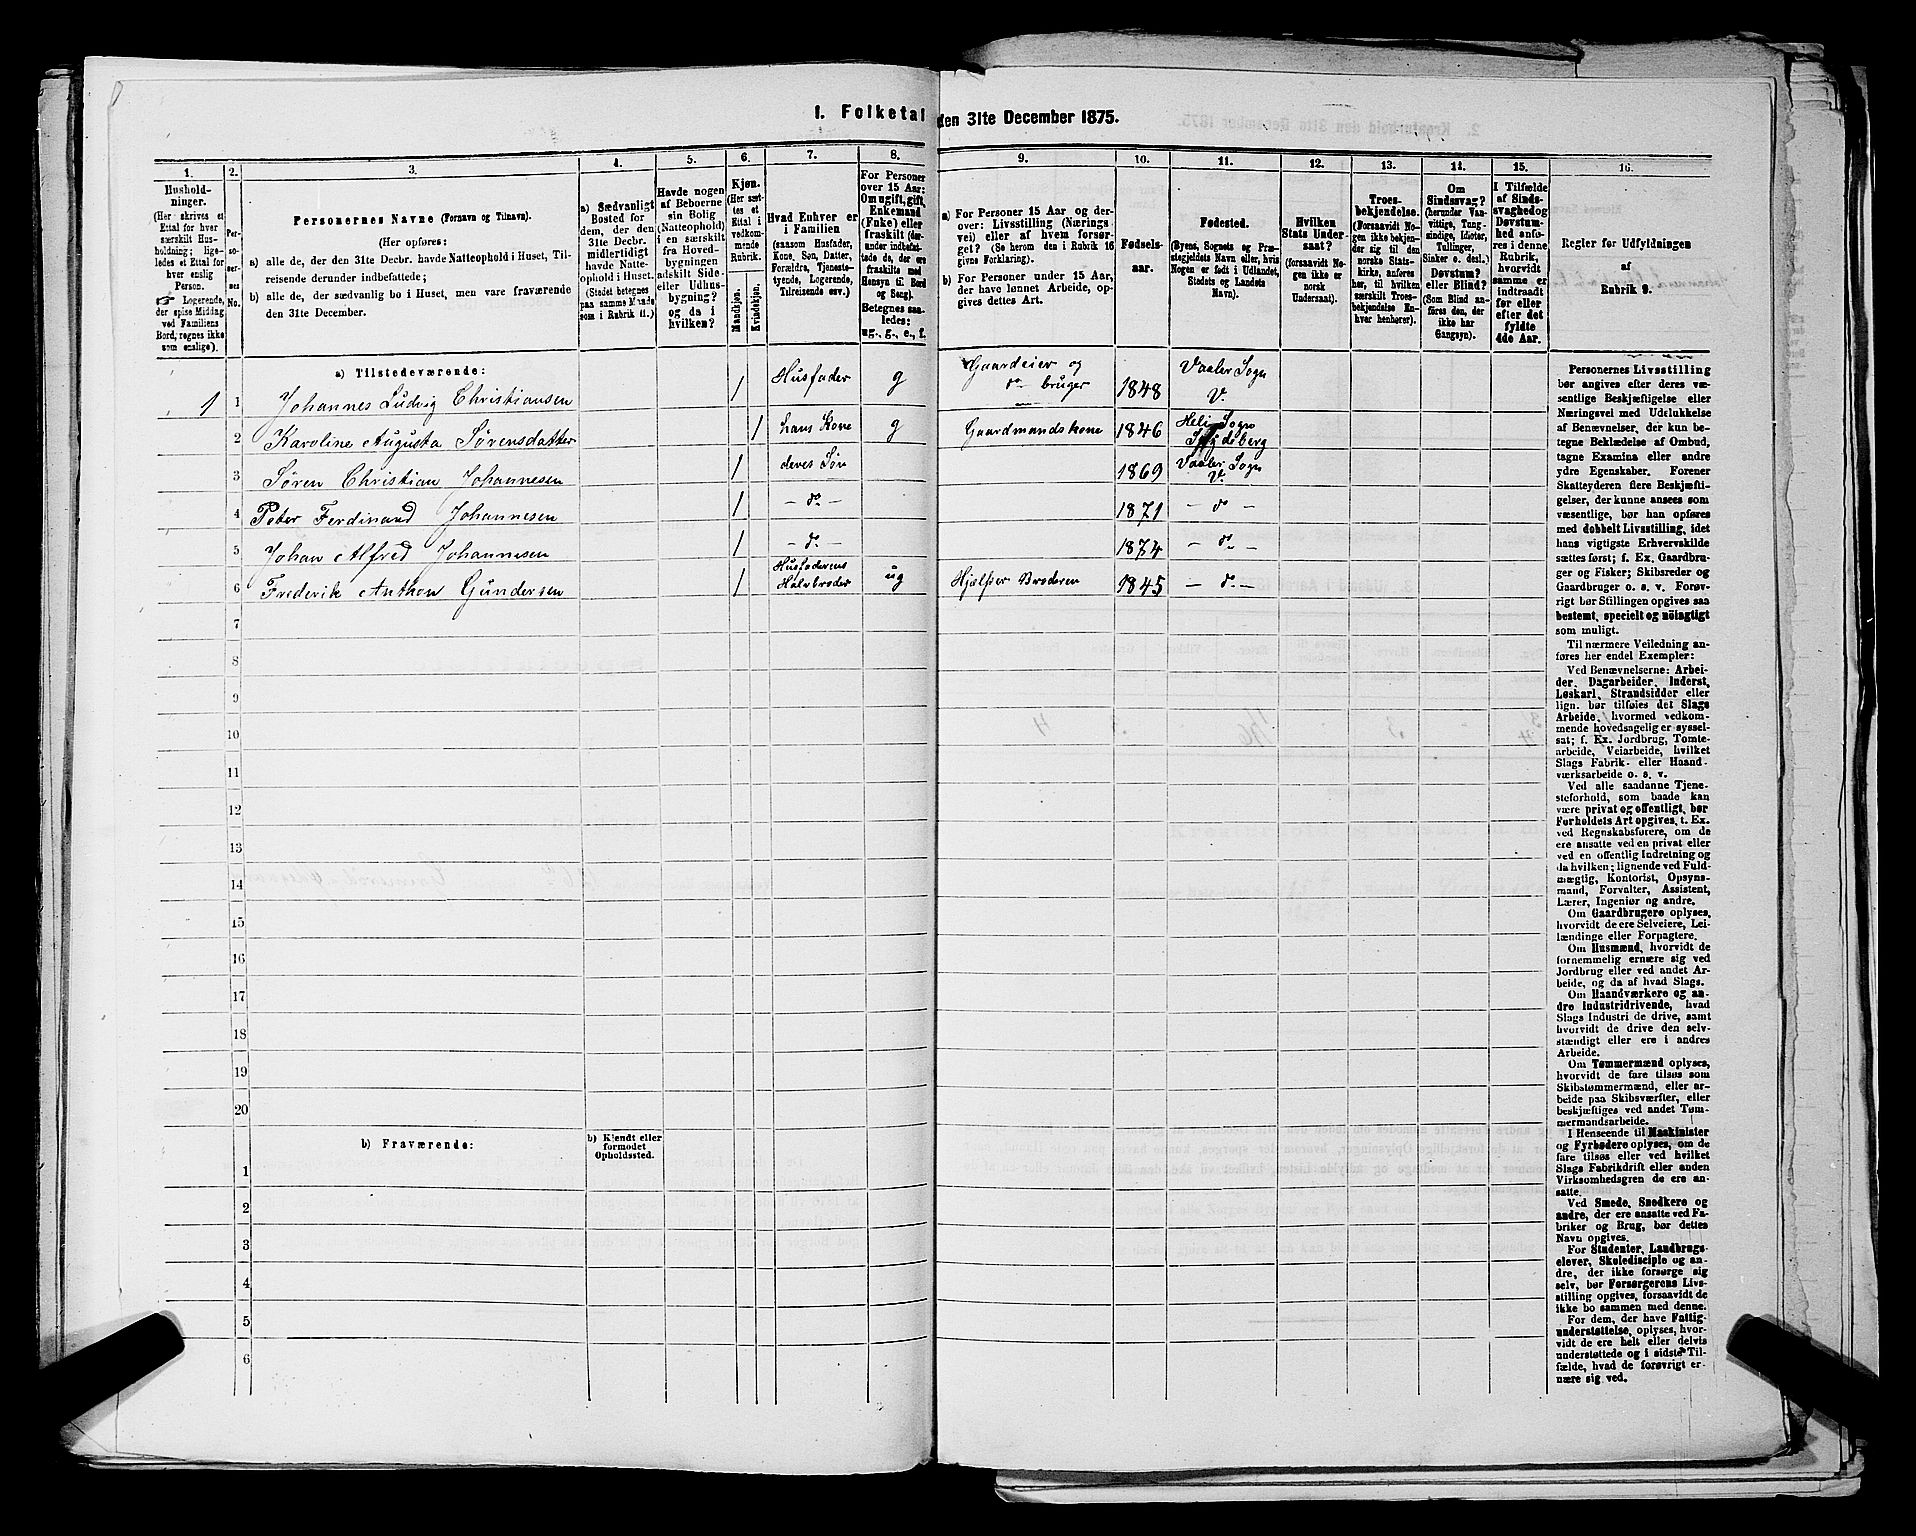 I. Folketal den 31te December 1875.
1.
Hushold-
ninger.
(Her skrives et
Ettal for hver
særskilt Hus-
holdning; lige-
ledes et Ettal for
hver enslig
Person.
Logerende,
der spise Middag
ved Familiens
Bord, regnes ikke
som enslige).
2.
Per-
so-
ner-
nes
No.
3.
Personernes Navne (Fornavn og Tilnavn).
(Her opføres:
a) alle de, der den 31te Decbr. havde Natteophold i Huset, Til-
reisende derunder indbefattede;
b) alle de, der sædvanlig bo i Huset, men vare fraværende
den 31te December.
4.
a) Sædvanligt
Bosted for
dem, der den
31te Decbr.
midlertidigt
havde Natte-
ophold i Huset.
(Stedet betegnes
paa samme Maade
som i Rubrik 11.)
5.
Havde nogen
af Beboerne
sin Bolig
(Natteophold)
i en særskilt
fra Hoved-
bygningen
adskilt Side-
eller Udhus-
bygning?
og da i
hvilken?
6.
Kjøn.
(Her sæt-
tes et
Ettal i
vedkom-
mende
Rubrik.
Mandkjøn.
Kvindekjøn.
7.
Hvad Enhver er
i Familien
(saasom Husfader,
Kone, Søn, Datter,
Forældre, Tjeneste-
tyende, Logerende,
Tilreisende osv.)
8.
For Personer
over 15 Aar:
Om ugift, gift,
Enkemand
(Enke) eller
fraskilt (der-
under indbefat-
tede de, der ere
fraskilte med
Hensyn til Bord
og Seng).
Betegnes saa-
ledes:
ug., g., e., f.
9.
a) For Personer 15 Aar og der-
over: Livsstilling (Nærings-
vei) eller af hvem forsør-
get? (Se herom den i Rubrik 16
givne Forklaring).
b) For Personer under 15 Aar,
der have lønnet Arbeide, op-
gives dettes Art.
10.
Fødsels-
aar.
11.
Fødested.
(Byens, Sognets og Præ-
stegjeldets Navn, eller hvis
Nogen er født i Udlandet,
Stedets og Landets
Navn).
12.
Hvilken
Stats Under-
saat?
(forsaavidt No-
gen ikke er
norsk
Undersaat).
13.
Troes-
bekjendelse.
(Forsaavidt No-
gen ikke bekjen-
der sig til den
norske Stats-
kirke, anføres
her, til hvilken
særskilt Troes-
bekjendelse En-
hver henhører).
14.
Om
Sindssvag?
(herunder Van-
vittige, Tung-
sindige, Idioter,
Tullinger,
Sinker o. desl.)
Døvstum?
eller Blind?
(Som Blind an-
føres den, der
ikke har
Gangsyn).
15.
I Tilfælde
af Sinds-
svaghed og
Døvstum-
hed anfø-
res i denne
Rubrik,
hvorvidt
samme er
indtraadt
før eller
efter det
fyldte
4de Aar.
16.
Regler for Udfyldningen
af
Rubrik 9.
a) Tilstedeværende:
1 1 Johannes Ludvig Christiansen 1 Husfader g Gaardeier og do bruger 1848 Vaaler Sogn V.
2 Karoline Augusta Sørensdatter 1 hans Kone g Gaardmandskone 1846 Heli Sogn Spydeberg
3 Søren Christian Johannesen 1 deres Søn 1869 Vaaler Sogn V.
4 Peter Ferdinand Johannesen 1 – do – 1871 – do –
5 Johan Alfred Johannesen 1 – do – 1874 – do –
6 Frederik Anthon Gundersen 1 Husfaderens Halvbroder ug Hjelper Broderen 1845 – do –
7
8
9
10
11
12
13
14
15
16
17
18
19
20
b) Fraværende:
b) Kjendt eller
formodet
Opholdssted.
1
2
3
4
5
6
Personernes Livsstilling
bør angives efter deres væ-
sentlige Beskjæftigelse eller
Næringsvei med Udelukkelse
af Benævnelser, der kun be-
tegne Beklædelse af Ombud,
tagne Examina eller andre
ydre Egenskaber. Forener
Skatteyderen flere Beskjæfti-
gelser, der kunne ansees som
væsentlige, bør han opføres
med dobbelt Livsstilling, idet
hans vigtigste Erhvervskilde
sættes først; f. Ex. Gaardbru-
ger og Fisker; Skibsreder og
Gaardbruger o. s. v. Forøv-
rigt bør Stillingen opgives saa
bestemt, specielt og nöiagtigt
som muligt.
Til nærmere Veiledning an-
føres her endel Exempler:
Ved Benævnelserne: Arbei-
der, Dagarbeider, Inderst,
Løskarl, Strandsidder eller
lign. bør tilføies det Slags
Arbeide, hvormed vedkom-
mende hovedsagelig er syssel-
sat; f. Ex. Jordbrug, Tomte-
arbeide, Veiarbeide, hvilket
Slags Fabrik- eller Haand-
værksarbeide o. s. v.
Ved alle saadanne Tjene-
steforhold, som baade kan
være privat og offentligt, bør
Forholdets Art opgives, t. Ex.
ved Regnskabsførere, om de
ere ansatte ved en privat eller
ved en offentlig Indretning og
da hvilken; lignende ved Fuld-
mægtig, Kontorist, Opsyns-
mand, Forvalter, Assistent,
Lærer, Ingeniør og andre.
Om Gaardbrugere oplyses,
hvorvidt de ere Selveiere, Lei-
lændinge eller Forpagtere.
Om Husmænd, hvorvidt de
fornemmelig ernære sig ved
Jordbrug eller ved andet Ar-
beide, og da af hvad Slags.
Om Haandværkere og an-
dre Industridrivende, hvad
Slags Industri de drive, samt
hvorvidt de drive den selv-
stændigt eller ere i andres
Arbeide.
Om Tømmermænd oplyses,
hvorvidt de fare tilsøs som
Skibstømmermænd, eller ar-
beide paa Skibsværfter, eller
beskjæftiges ved andet Tøm-
mermandsarbeide.
I Henseende til Maskinister
og Fyrbødere oplyses, om de
fare tilsøs eller ved hvilket
Slags Fabrikdrift eller anden
Virksomhedsgren de ere an-
satte.
Ved Smede, Snedkere og
andre, der ere ansatte ved Fa-
briker og Brug, bør dettes
Navn opgives.
For Studenter, Landbrugs-
elever, Skoledisciple og an-
dre, der ikke forsørge sig
selv, bør Forsørgerens Livs-
stilling opgives, forsaavidt de
ikke bo sammen med denne.
For dem, der have Fattig-
understøttelse, oplyses, hvor-
vidt de ere helt eller delvis
understøttede og i sidste Til-
fælde, hvad de forøvrigt er-
nære sig ved.